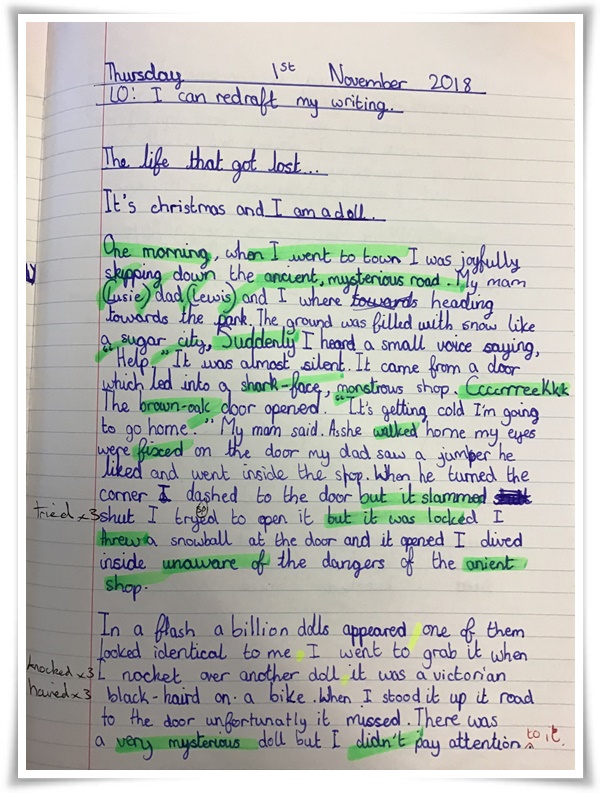 Thursday 1st November 2018
LO: I can redraft my writing.
The life that got lost...
It's christmas and I am a doll.
One morning, when I went to town I was joyfully
skipping down the ancient, mysterious road. My mam
(Lusie) dad (Lewis) and I where towards heading
towards the park. The ground was filled with snow like
a sugar city, Suddenly I heard a small voice saying,
"Help." It was almost silent. It came from a door
which led into a shark-face, monstrows shop. CcccrrreeKkk
The brown-oak door opened. "It's getting cold I'm going
to go home." My mam said. As she walked home my eyes
were fixced on the door my dad saw a jumper he
liked and went inside the shop. When he turned the
corner I dashed to the door but it slammed
tried x3 shut I tryed to open it but it was locked I
threw a snowball at the door and it opened I dived
inside unaware of the dangers of the anient
shop.
In a flash a billion dolls appeared, one of them
looked identical to me. I went to grab it when
knocked x3 I nocket over another doll, it was a victorian
haired x3 black-haird on a bike. When I stood it up it road
to the door unfortunatly it mussed. There was
a very mysterious doll but I didn't pay attention to it.